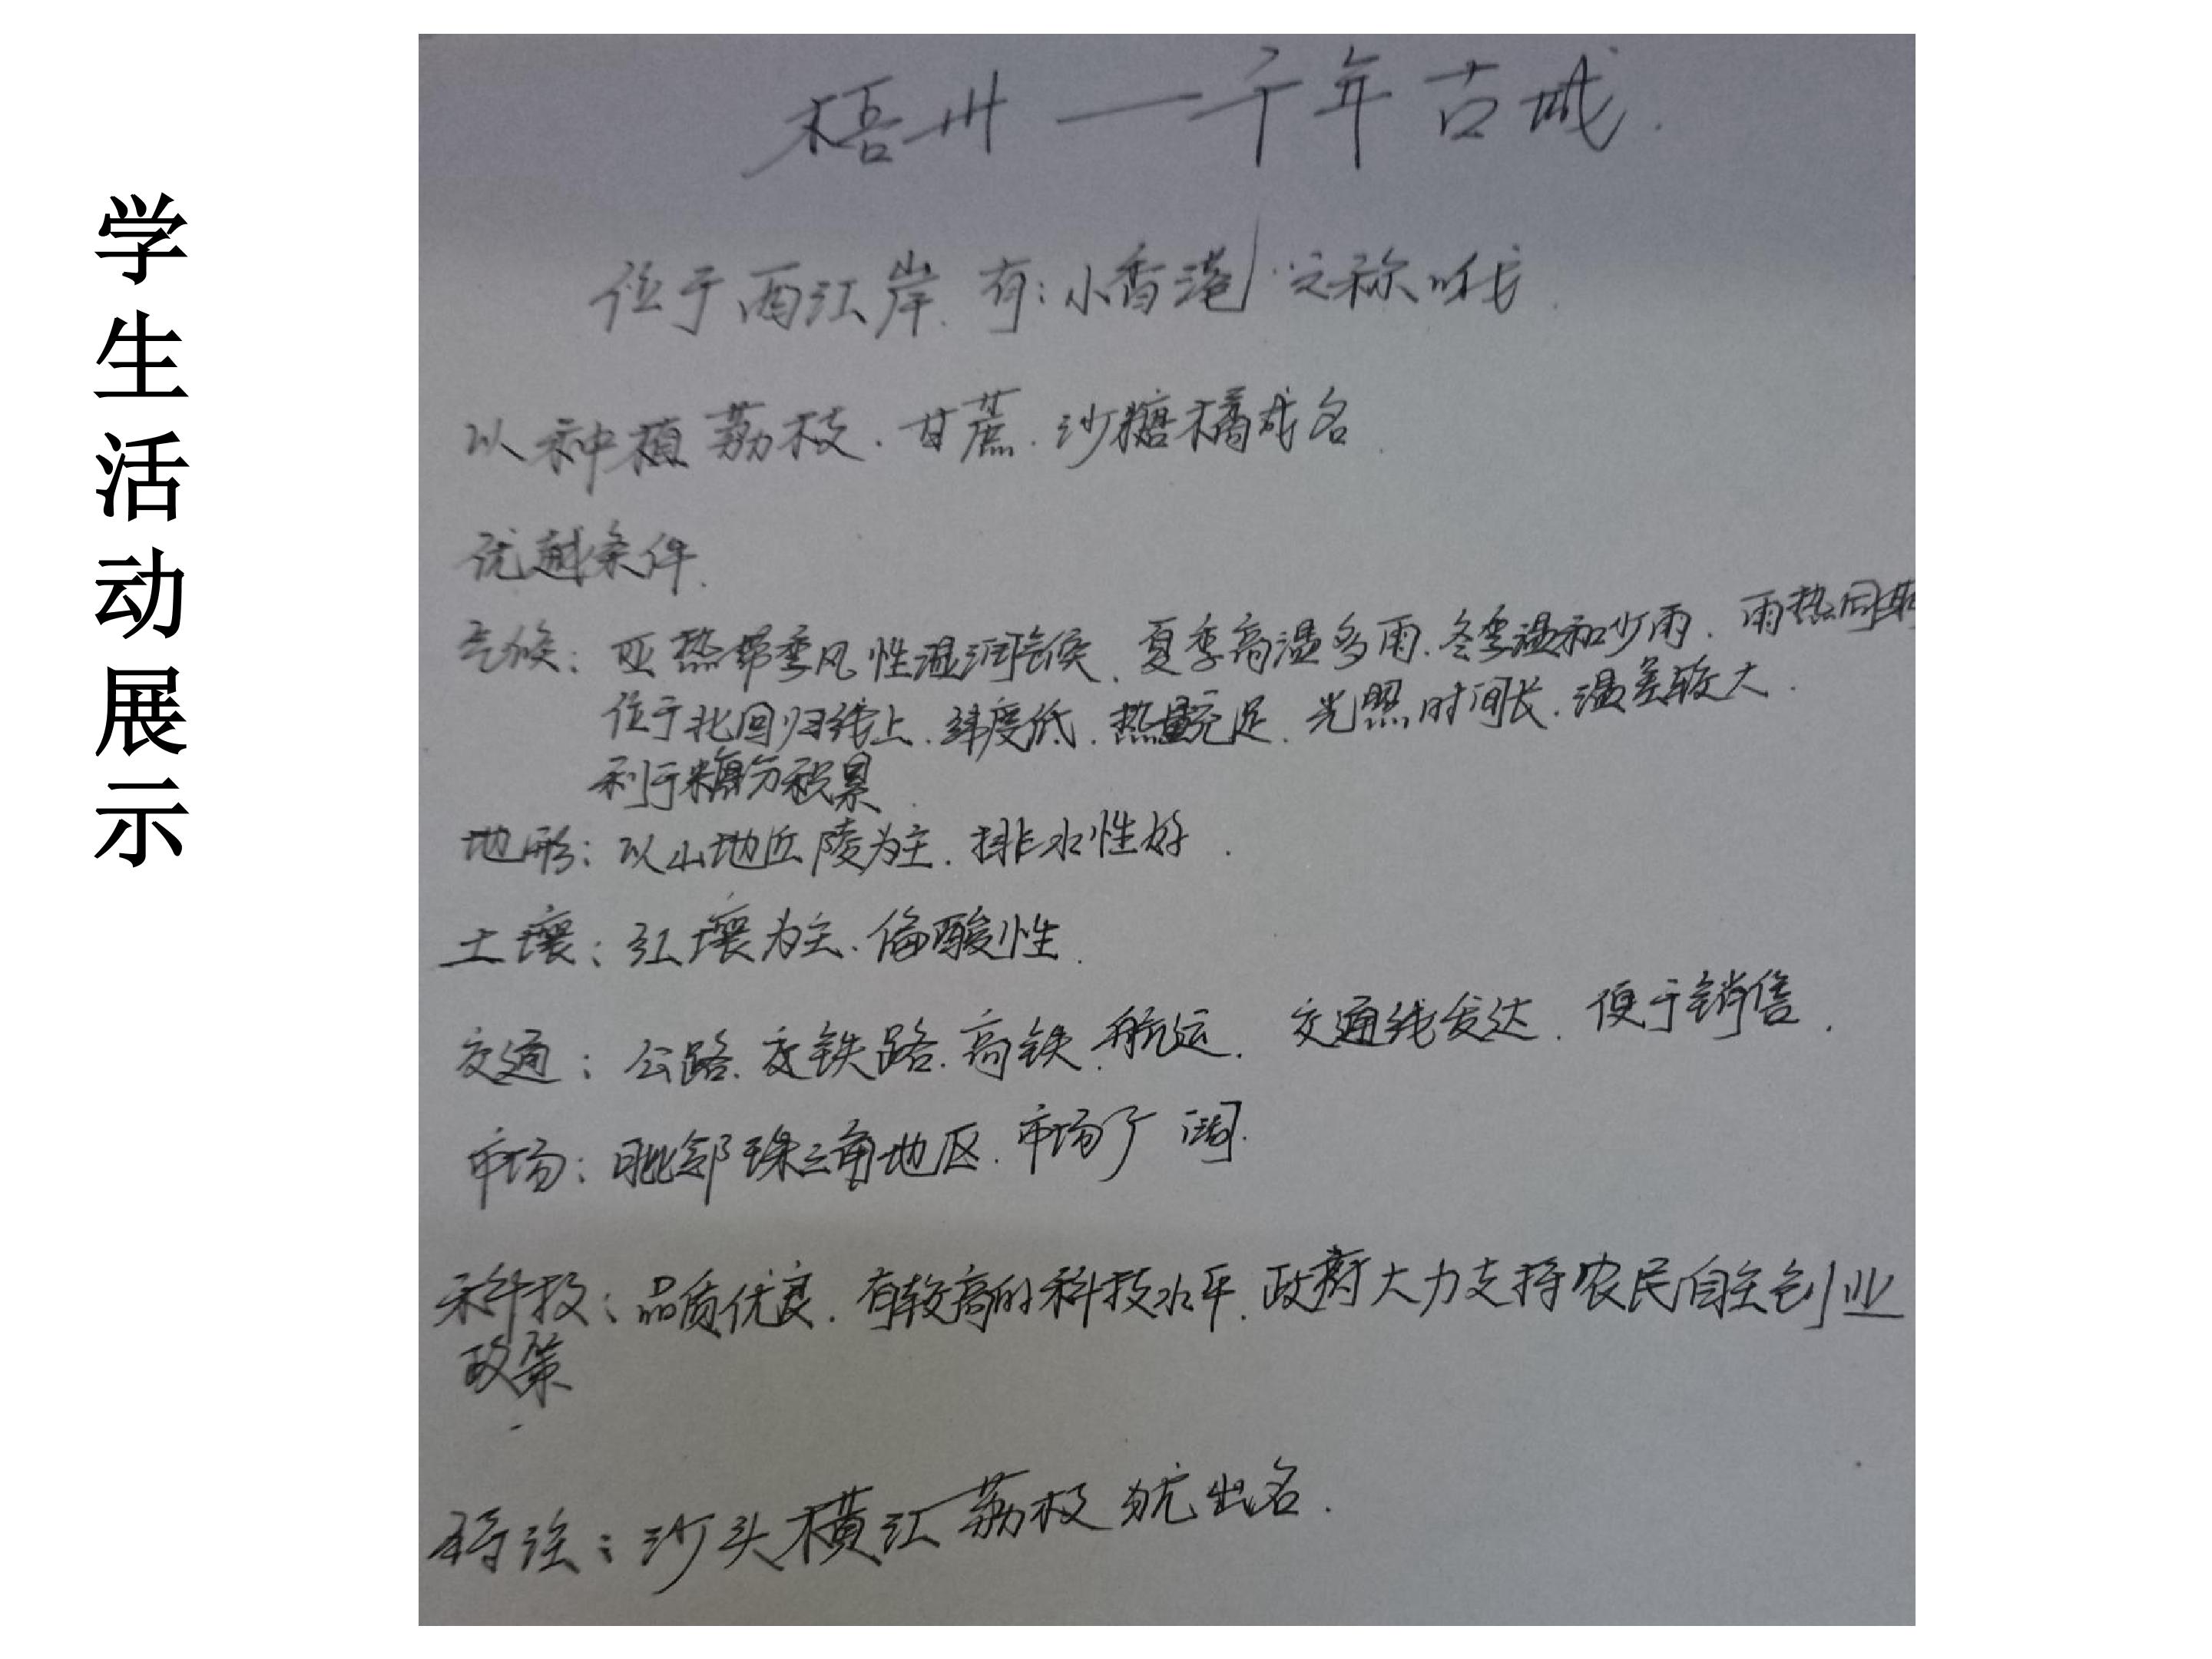 学生活动展示
梧州——千年古城.
位于西江岸.有:小香港"之称
以种植荔枝.甘蔗.沙糖橘成名.
优越条件.
气候:亚热带季风性湿润气候.夏季高温多雨.冬季温和少雨.雨热同期
位于北回归线上.纬度低.热量充足.光照时间长.温差较大.
利于糖分积累.
地形:以山地丘陵为主.排水性好.
土壤:红壤为主.偏酸性.
交通:公路.铁路.高铁.航运.交通线发达.便于销售.
市场:毗邻珠三角地区.市场广阔.
科技:品质优良.有较高的科技水平.政府大力支持农民自主创业
政策
特注:沙头横江荔枝尤出名.